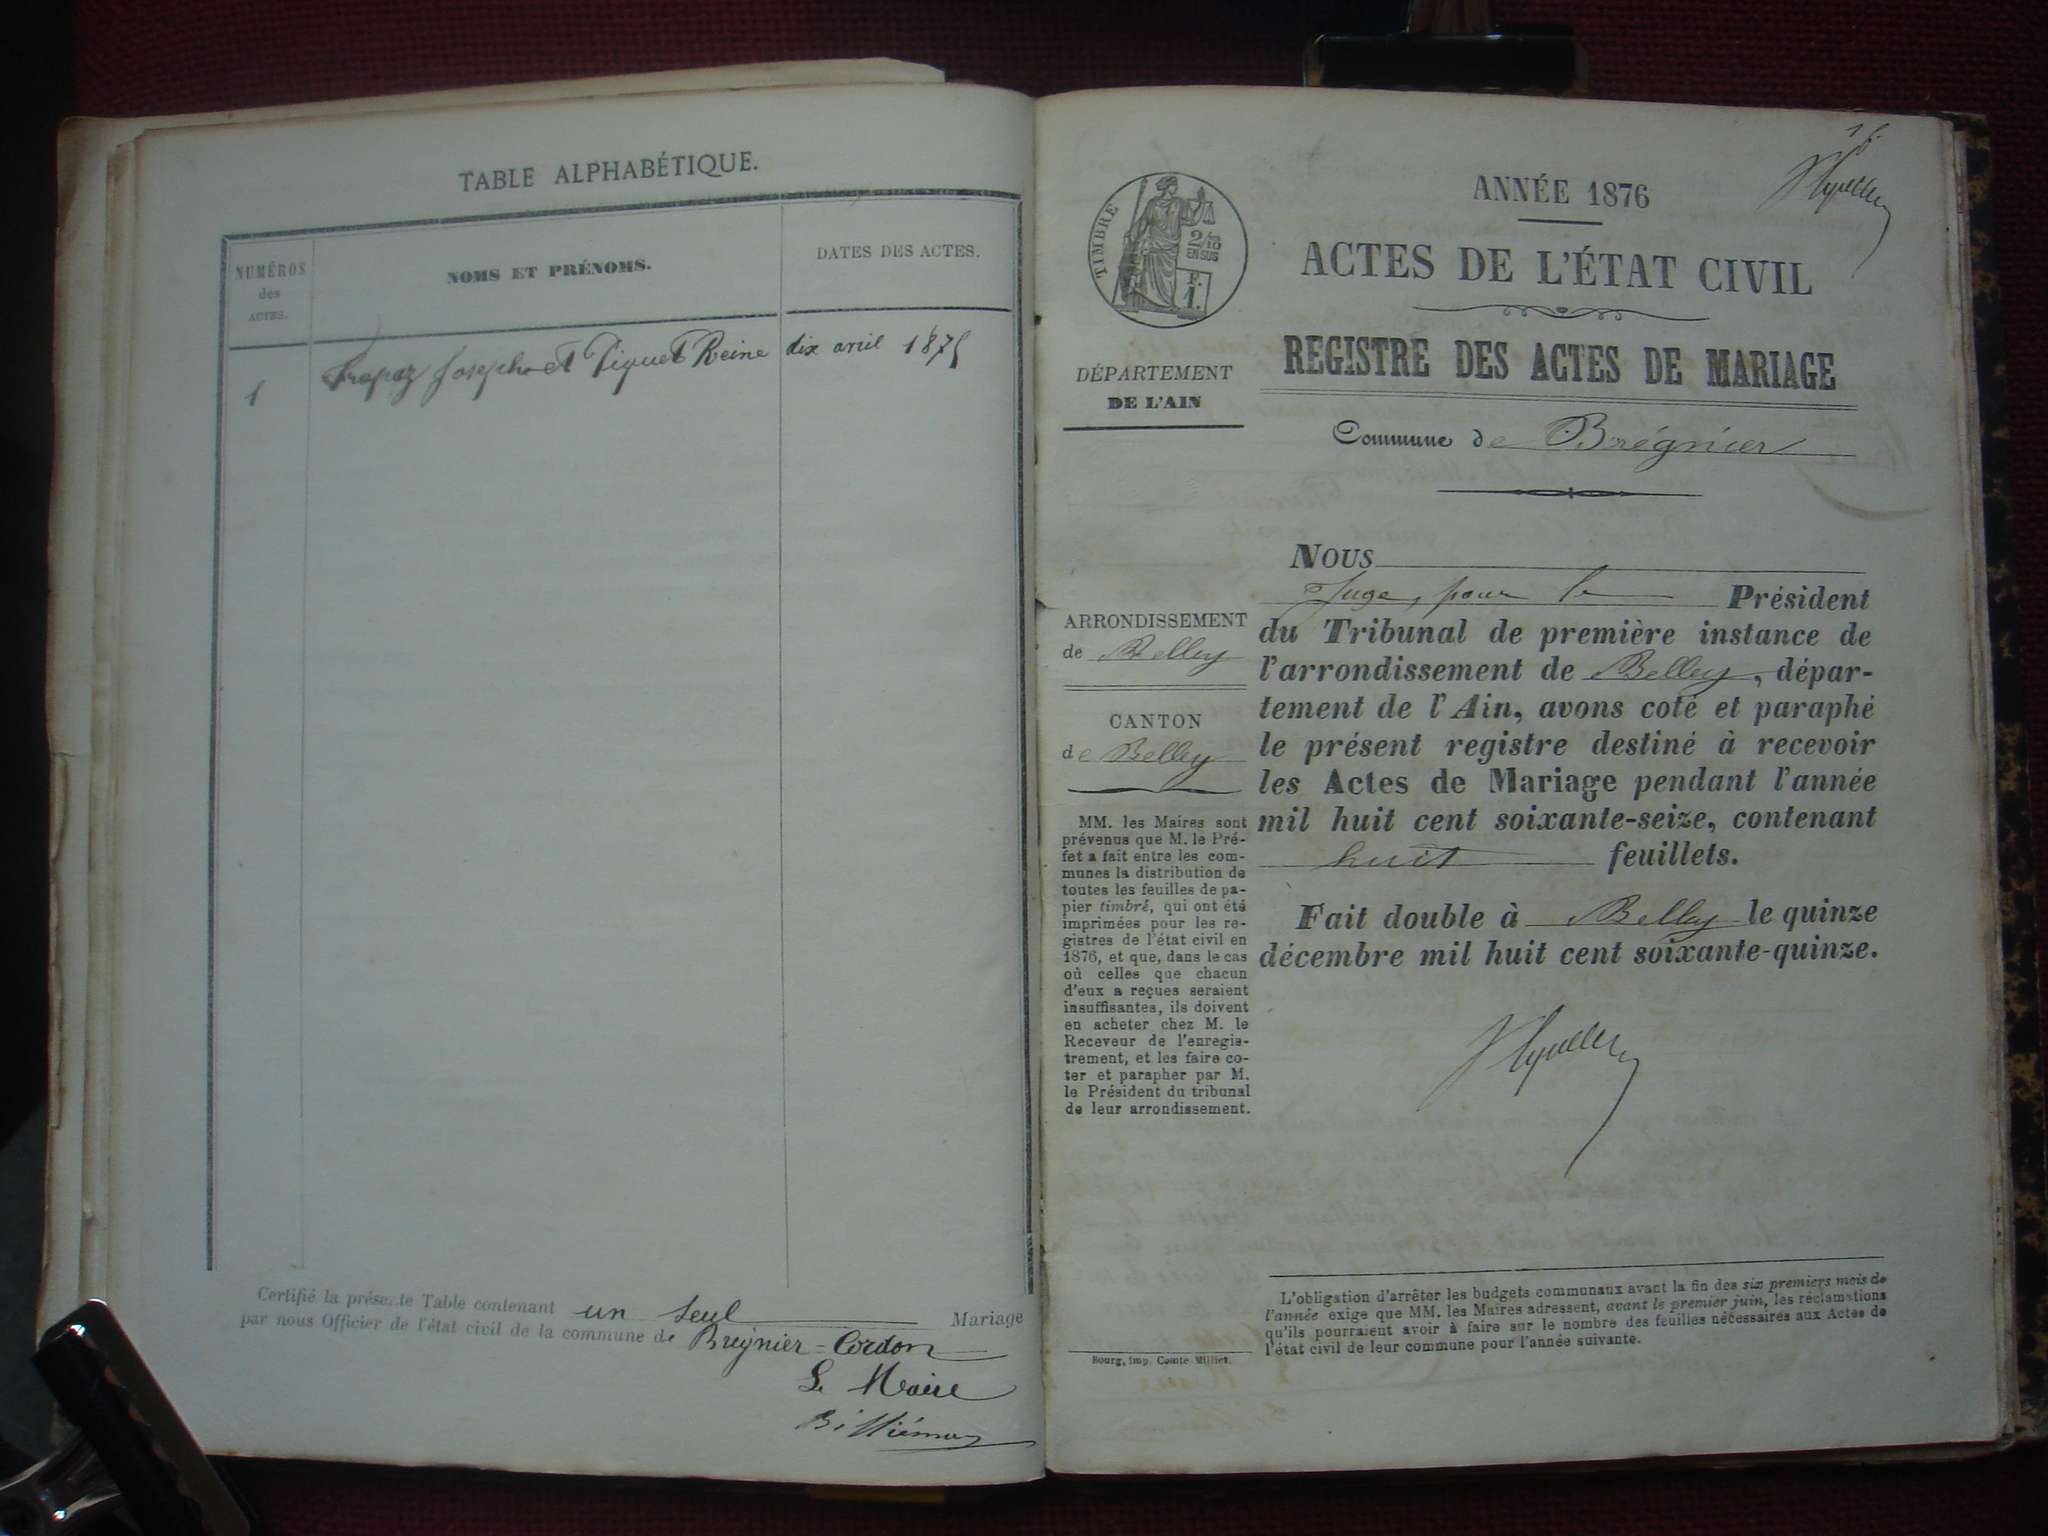 TABLE ALPHABÉTIQUE.
NUMÉROS
des
ACTES.
NOMS ET PRÉNOMS.
DATES DES ACTES.
1
Joseph et Piquet Reine
dix avril 1875
Certifié la présente Table contenant un seul Mariage
par nous Officier de l'état civil de la commune de Bregnier-Cordon
Le Maire
ANNÉE 1876
ACTES DE L'ÉTAT CIVIL
REGISTRE DES ACTES DE MARIAGE
Commune de Brégnier
TIMBRE
2/10
EN SUS
F.
1.
DÉPARTEMENT
DE L'AIN
ARRONDISSEMENT
de Belley
CANTON
de Belley
MM. les Maires sont
prévenus que M. le Pré-
fet a fait entre les com-
munes la distribution de
toutes les feuilles de pa-
pier timbré, qui ont été
imprimées pour les re-
gistres de l'état civil en
1876, et que, dans le cas
où celles que chacun
d'eux a reçues seraient
insuffisantes, ils doivent
en acheter chez M. le
Receveur de l'enregis-
trement, et les faire co-
ter et parapher par M.
le Président du tribunal
de leur arrondissement.
NOUS
Juge, pour le Président
du Tribunal de première instance de
l'arrondissement de Belley, dépar-
tement de l'Ain, avons coté et paraphé
le présent registre destiné à recevoir
les Actes de Mariage pendant l'année
mil huit cent soixante-seize, contenant
huit feuillets.
Fait double à Belley le quinze
décembre mil huit cent soixante-quinze.
L'obligation d'arrêter les budgets communaux avant la fin des six premiers mois de
l'année exige que MM. les Maires adressent, avant le premier juin, les réclamations
qu'ils pourraient avoir à faire sur le nombre des feuilles nécessaires aux Actes de
l'état civil de leur commune pour l'année suivante.
Bourg, imp. Comte-Milliet.